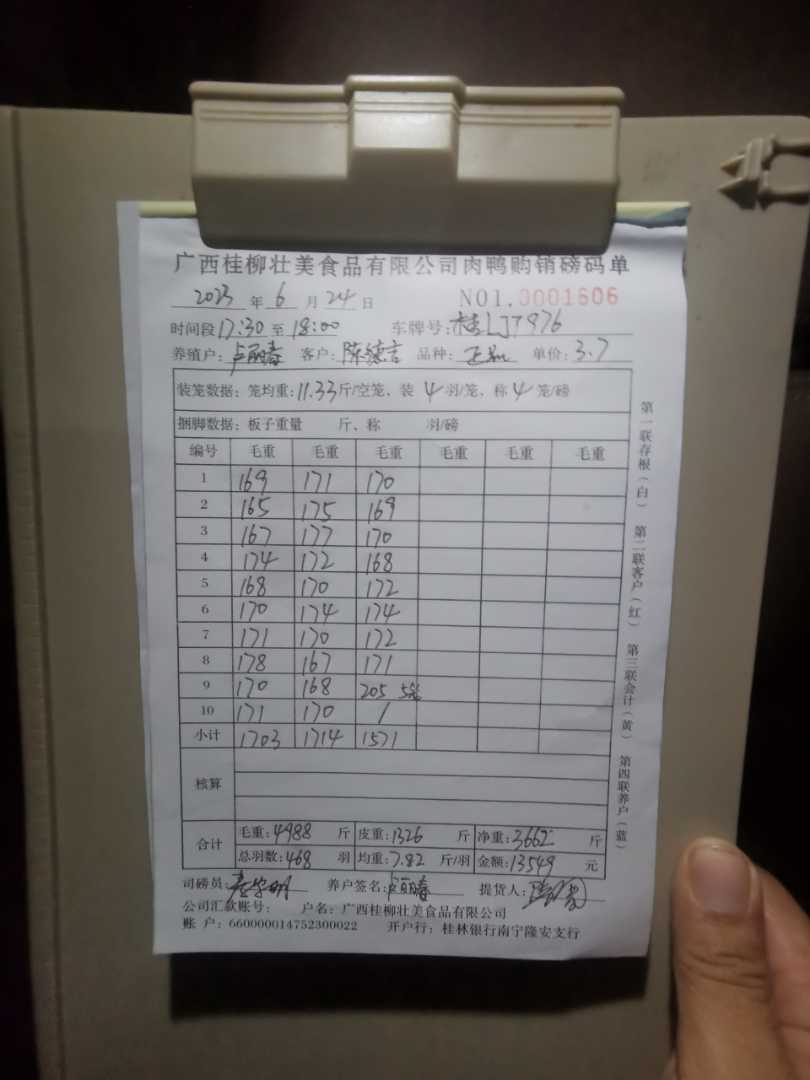 广西桂柳壮美食品有限公司肉鸭购销磅码单
2023 年 6 月 24 日 NO1.0001606
时间段 17:30 至 18:00 车牌号: 桂LJ7976
养殖户: 卢丽春 客户: 陈德言 品种: 单价: 3.7
装笼数据: 笼均重: 11.33 斤/空笼、装 4 羽/笼、称 4 笼/磅
捆脚数据: 板子重量 斤、称 羽/磅
编号 毛重 毛重 毛重 毛重 毛重 毛重
1 169 171 170
2 165 175 169
3 167 177 170
4 174 172 168
5 168 170 172
6 170 174 174
7 171 170 172
8 178 167 171
9 170 168 205 5笼
10 171 170 /
小计 1703 1714 1571
核算
合计 毛重: 4988 斤 皮重: 1326 斤 净重: 3662 斤
总羽数: 468 羽 均重: 7.82 斤/羽 金额: 13549 元
司磅员: 养户签名: 卢丽春 提货人:
公司汇款账号: 户名: 广西桂柳壮美食品有限公司
账户: 660000014752300022 开户行: 桂林银行南宁隆安支行
第一联存根(白) 第二联客户(红) 第三联会计(黄) 第四联养户(蓝)